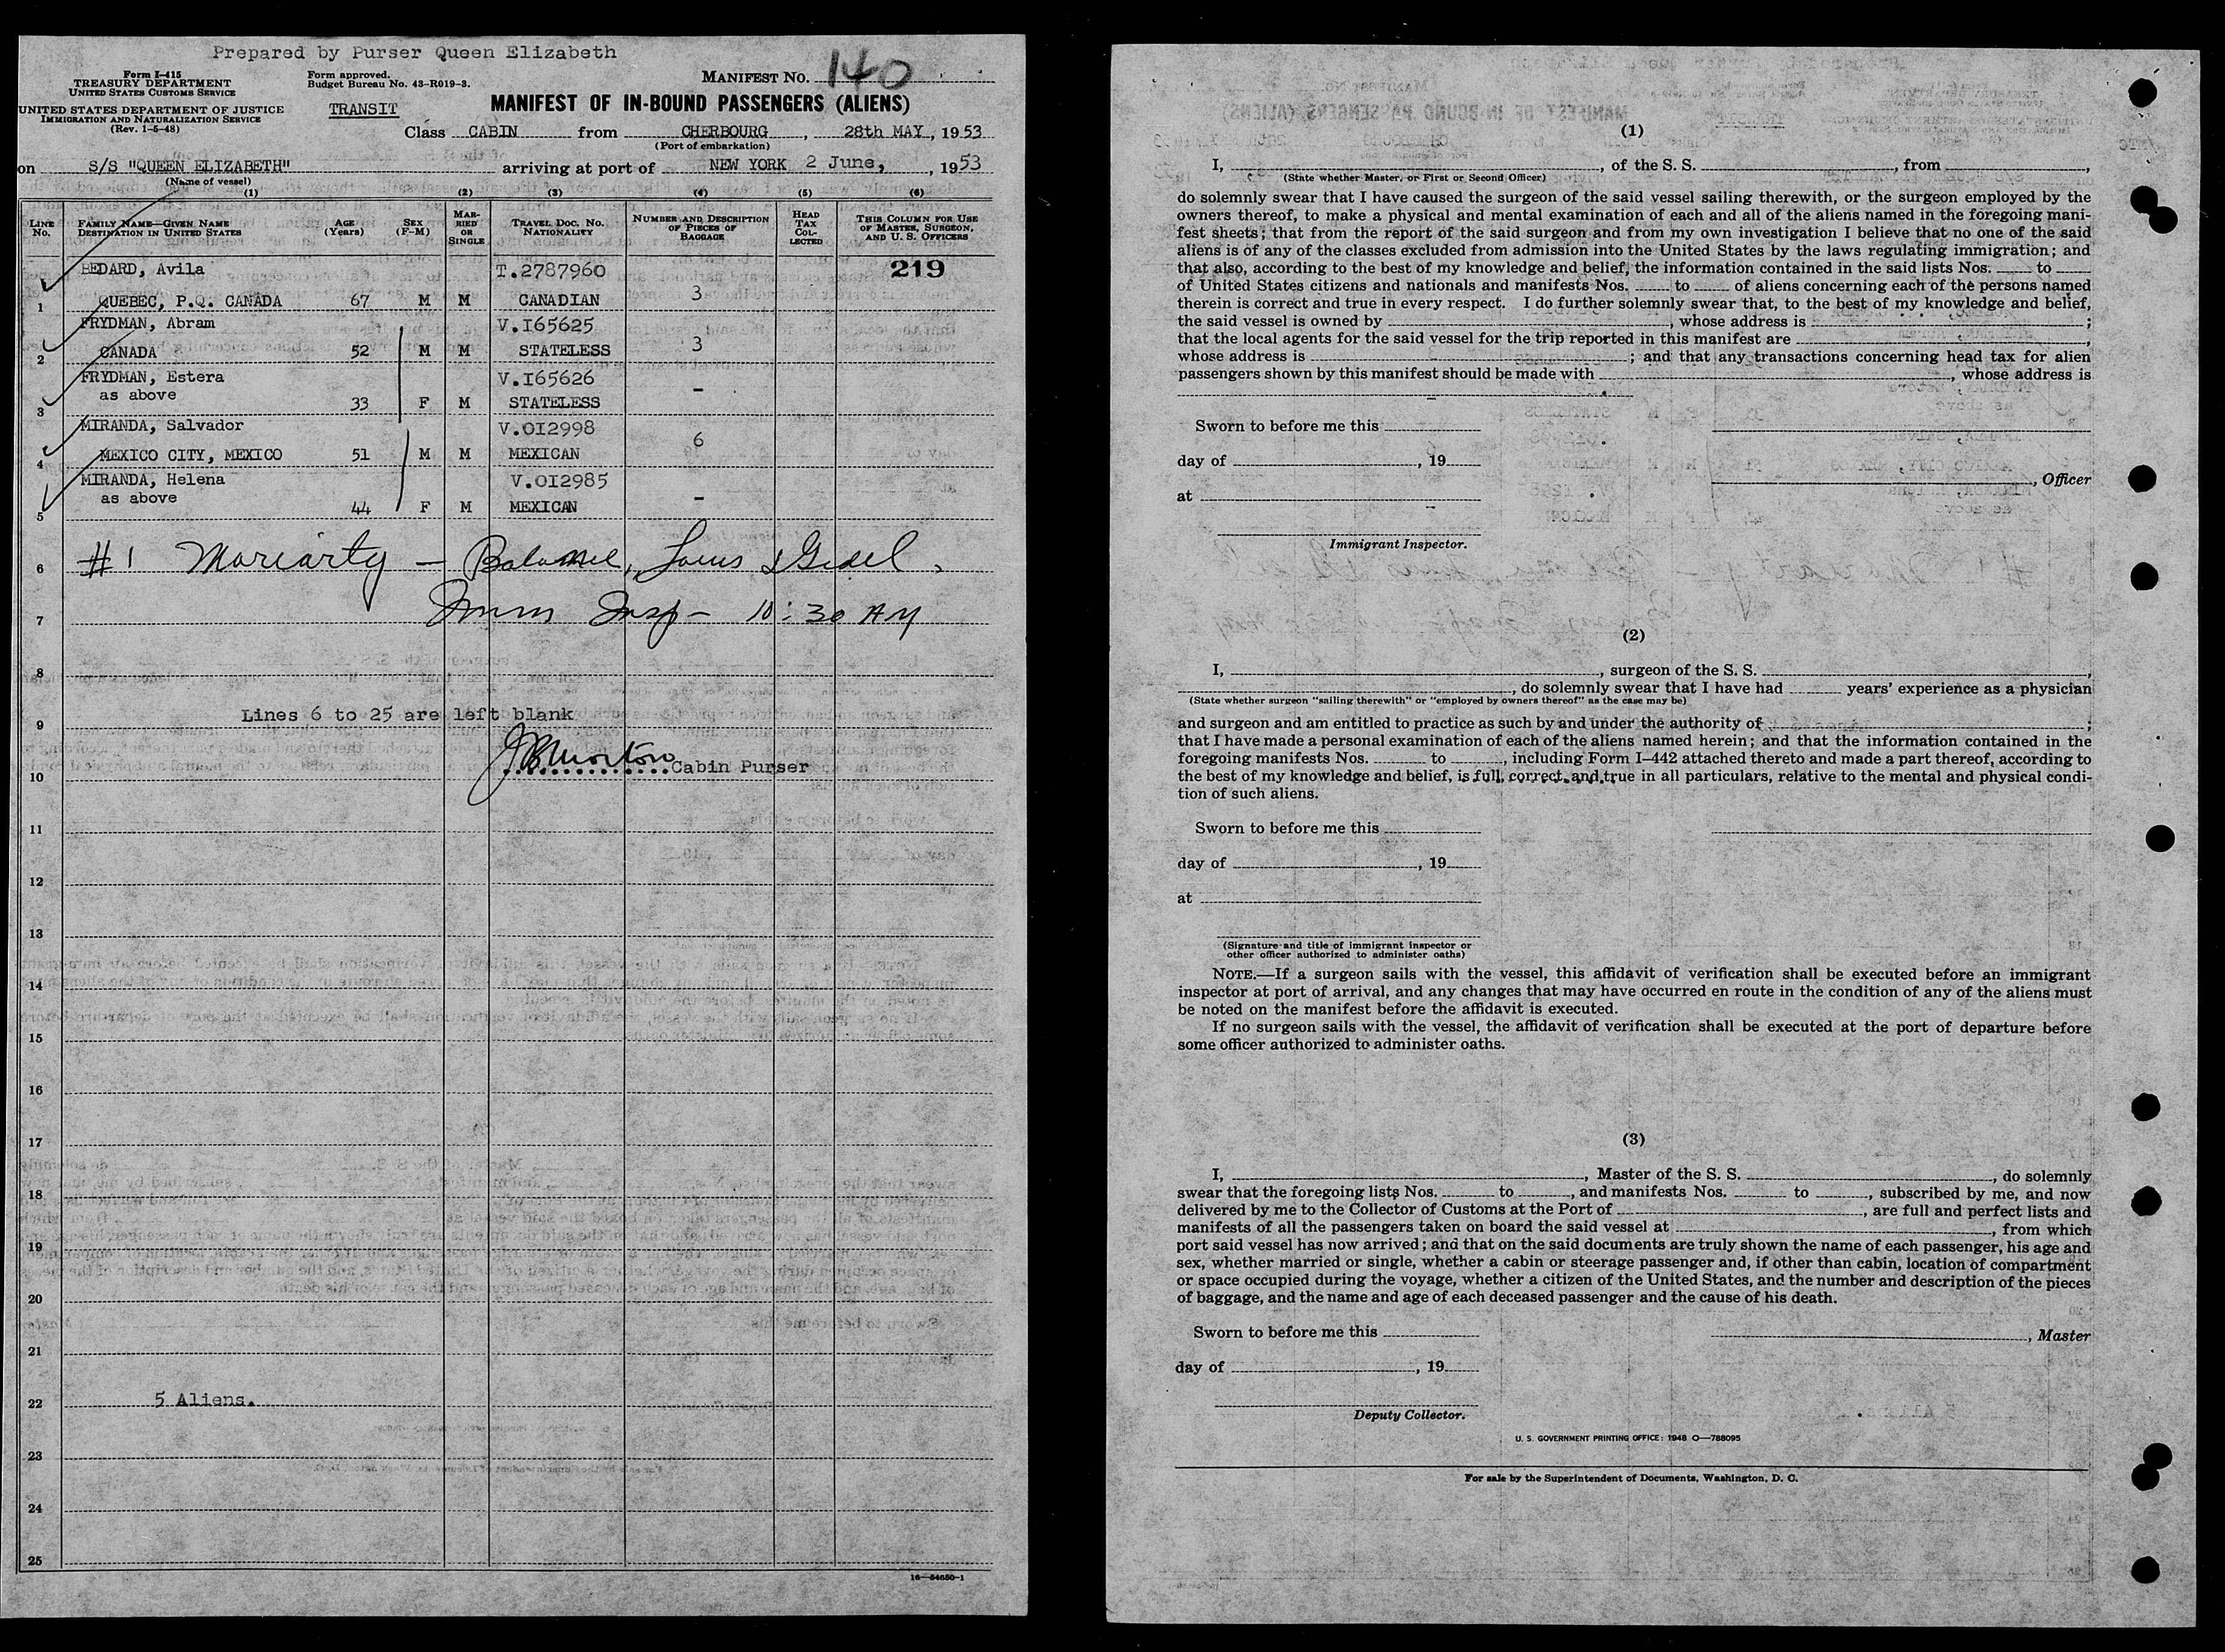 Prepared by Purser Queen Elizabeth
Form I-415
TREASURY DEPARTMENT
UNITED STATES CUSTOMS SERVICE
UNITED STATES DEPARTMENT OF JUSTICE
IMMIGRATION AND NATURALIZATION SERVICE
(Rev. 1-5-48)
Form approved.
Budget Bureau No. 43-R019-3.
TRANSIT
MANIFEST NO. 140
MANIFEST OF IN-BOUND PASSENGERS (ALIENS)
Class CABIN from CHERBOURG, 28th MAY, 1953
(Port of embarkation)
on S/S "QUEEN ELIZABETH" arriving at port of NEW YORK 2 June, 1953
(Name of vessel)
(1) (2) (3) (4) (5) (6)
LINE No. FAMILY NAME—GIVEN NAME DESTINATION IN UNITED STATES AGE (Years) SEX (F-M) MARRIED OR SINGLE TRAVEL DOC. NO. NATIONALITY NUMBER AND DESCRIPTION OF PIECES OF BAGGAGE HEAD TAX COLLECTED THIS COLUMN FOR USE OF MASTER, SURGEON, AND U. S. OFFICERS
BEDARD, Avila T.2787960 219
1 QUEBEC, P.Q. CANADA 67 M M CANADIAN 3
FRYDMAN, Abram V.I65625
2 CANADA 52 M M STATELESS 3
FRYDMAN, Estera V.I65626
3 as above 33 F M STATELESS -
MIRANDA, Salvador V.OI2998
4 MEXICO CITY, MEXICO 51 M M MEXICAN 6
MIRANDA, Helena V.OI2985
5 as above 44 F M MEXICAN -
6 #1 Moriarty — Louis &
7 Imm Insp - 10:30 AM
8
9 Lines 6 to 25 are left blank
10 JB Morton Cabin Purser
11
12
13
14
15
16
17
18
19
20
21
22 5 Aliens.
23
24
25
16—54650-1
(1)
I, , of the S. S. , from ,
(State whether Master, or First or Second Officer)
do solemnly swear that I have caused the surgeon of the said vessel sailing therewith, or the surgeon employed by the
owners thereof, to make a physical and mental examination of each and all of the aliens named in the foregoing mani-
fest sheets; that from the report of the said surgeon and from my own investigation I believe that no one of the said
aliens is of any of the classes excluded from admission into the United States by the laws regulating immigration; and
that also, according to the best of my knowledge and belief, the information contained in the said lists Nos. to
of United States citizens and nationals and manifests Nos. to of aliens concerning each of the persons named
therein is correct and true in every respect. I do further solemnly swear that, to the best of my knowledge and belief,
the said vessel is owned by , whose address is ;
that the local agents for the said vessel for the trip reported in this manifest are ,
whose address is ; and that any transactions concerning head tax for alien
passengers shown by this manifest should be made with , whose address is
Sworn to before me this
day of , 19
, Officer
at
Immigrant Inspector.
(2)
I, , surgeon of the S. S. ,
, do solemnly swear that I have had years' experience as a physician
(State whether surgeon "sailing therewith" or "employed by owners thereof" as the case may be)
and surgeon and am entitled to practice as such by and under the authority of ;
that I have made a personal examination of each of the aliens named herein; and that the information contained in the
foregoing manifests Nos. to , including Form I-442 attached thereto and made a part thereof, according to
the best of my knowledge and belief, is full, correct, and true in all particulars, relative to the mental and physical condi-
tion of such aliens.
Sworn to before me this
day of , 19
at
(Signature and title of immigrant inspector or
other officer authorized to administer oaths)
NOTE.—If a surgeon sails with the vessel, this affidavit of verification shall be executed before an immigrant
inspector at port of arrival, and any changes that may have occurred en route in the condition of any of the aliens must
be noted on the manifest before the affidavit is executed.
If no surgeon sails with the vessel, the affidavit of verification shall be executed at the port of departure before
some officer authorized to administer oaths.
(3)
I, , Master of the S. S. , do solemnly
swear that the foregoing lists Nos. to , and manifests Nos. to , subscribed by me, and now
delivered by me to the Collector of Customs at the Port of , are full and perfect lists and
manifests of all the passengers taken on board the said vessel at , from which
port said vessel has now arrived; and that on the said documents are truly shown the name of each passenger, his age and
sex, whether married or single, whether a cabin or steerage passenger and, if other than cabin, location of compartment
or space occupied during the voyage, whether a citizen of the United States, and the number and description of the pieces
of baggage, and the name and age of each deceased passenger and the cause of his death.
Sworn to before me this
, Master
day of , 19
Deputy Collector.
U. S. GOVERNMENT PRINTING OFFICE: 1948 O—788095
For sale by the Superintendent of Documents, Washington, D. C.